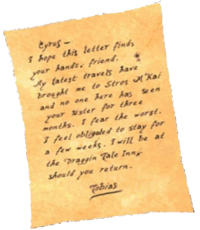 Cyrus —
I hope this letter finds
your hands, friend.
My latest travels have
brought me to Stros M'Kai
and no one here has seen
your sister for three
months. I fear the worst.
I feel obligated to stay for
a few weeks. I will be at
the Draggin Tale Inn,
should you return.
Tobias